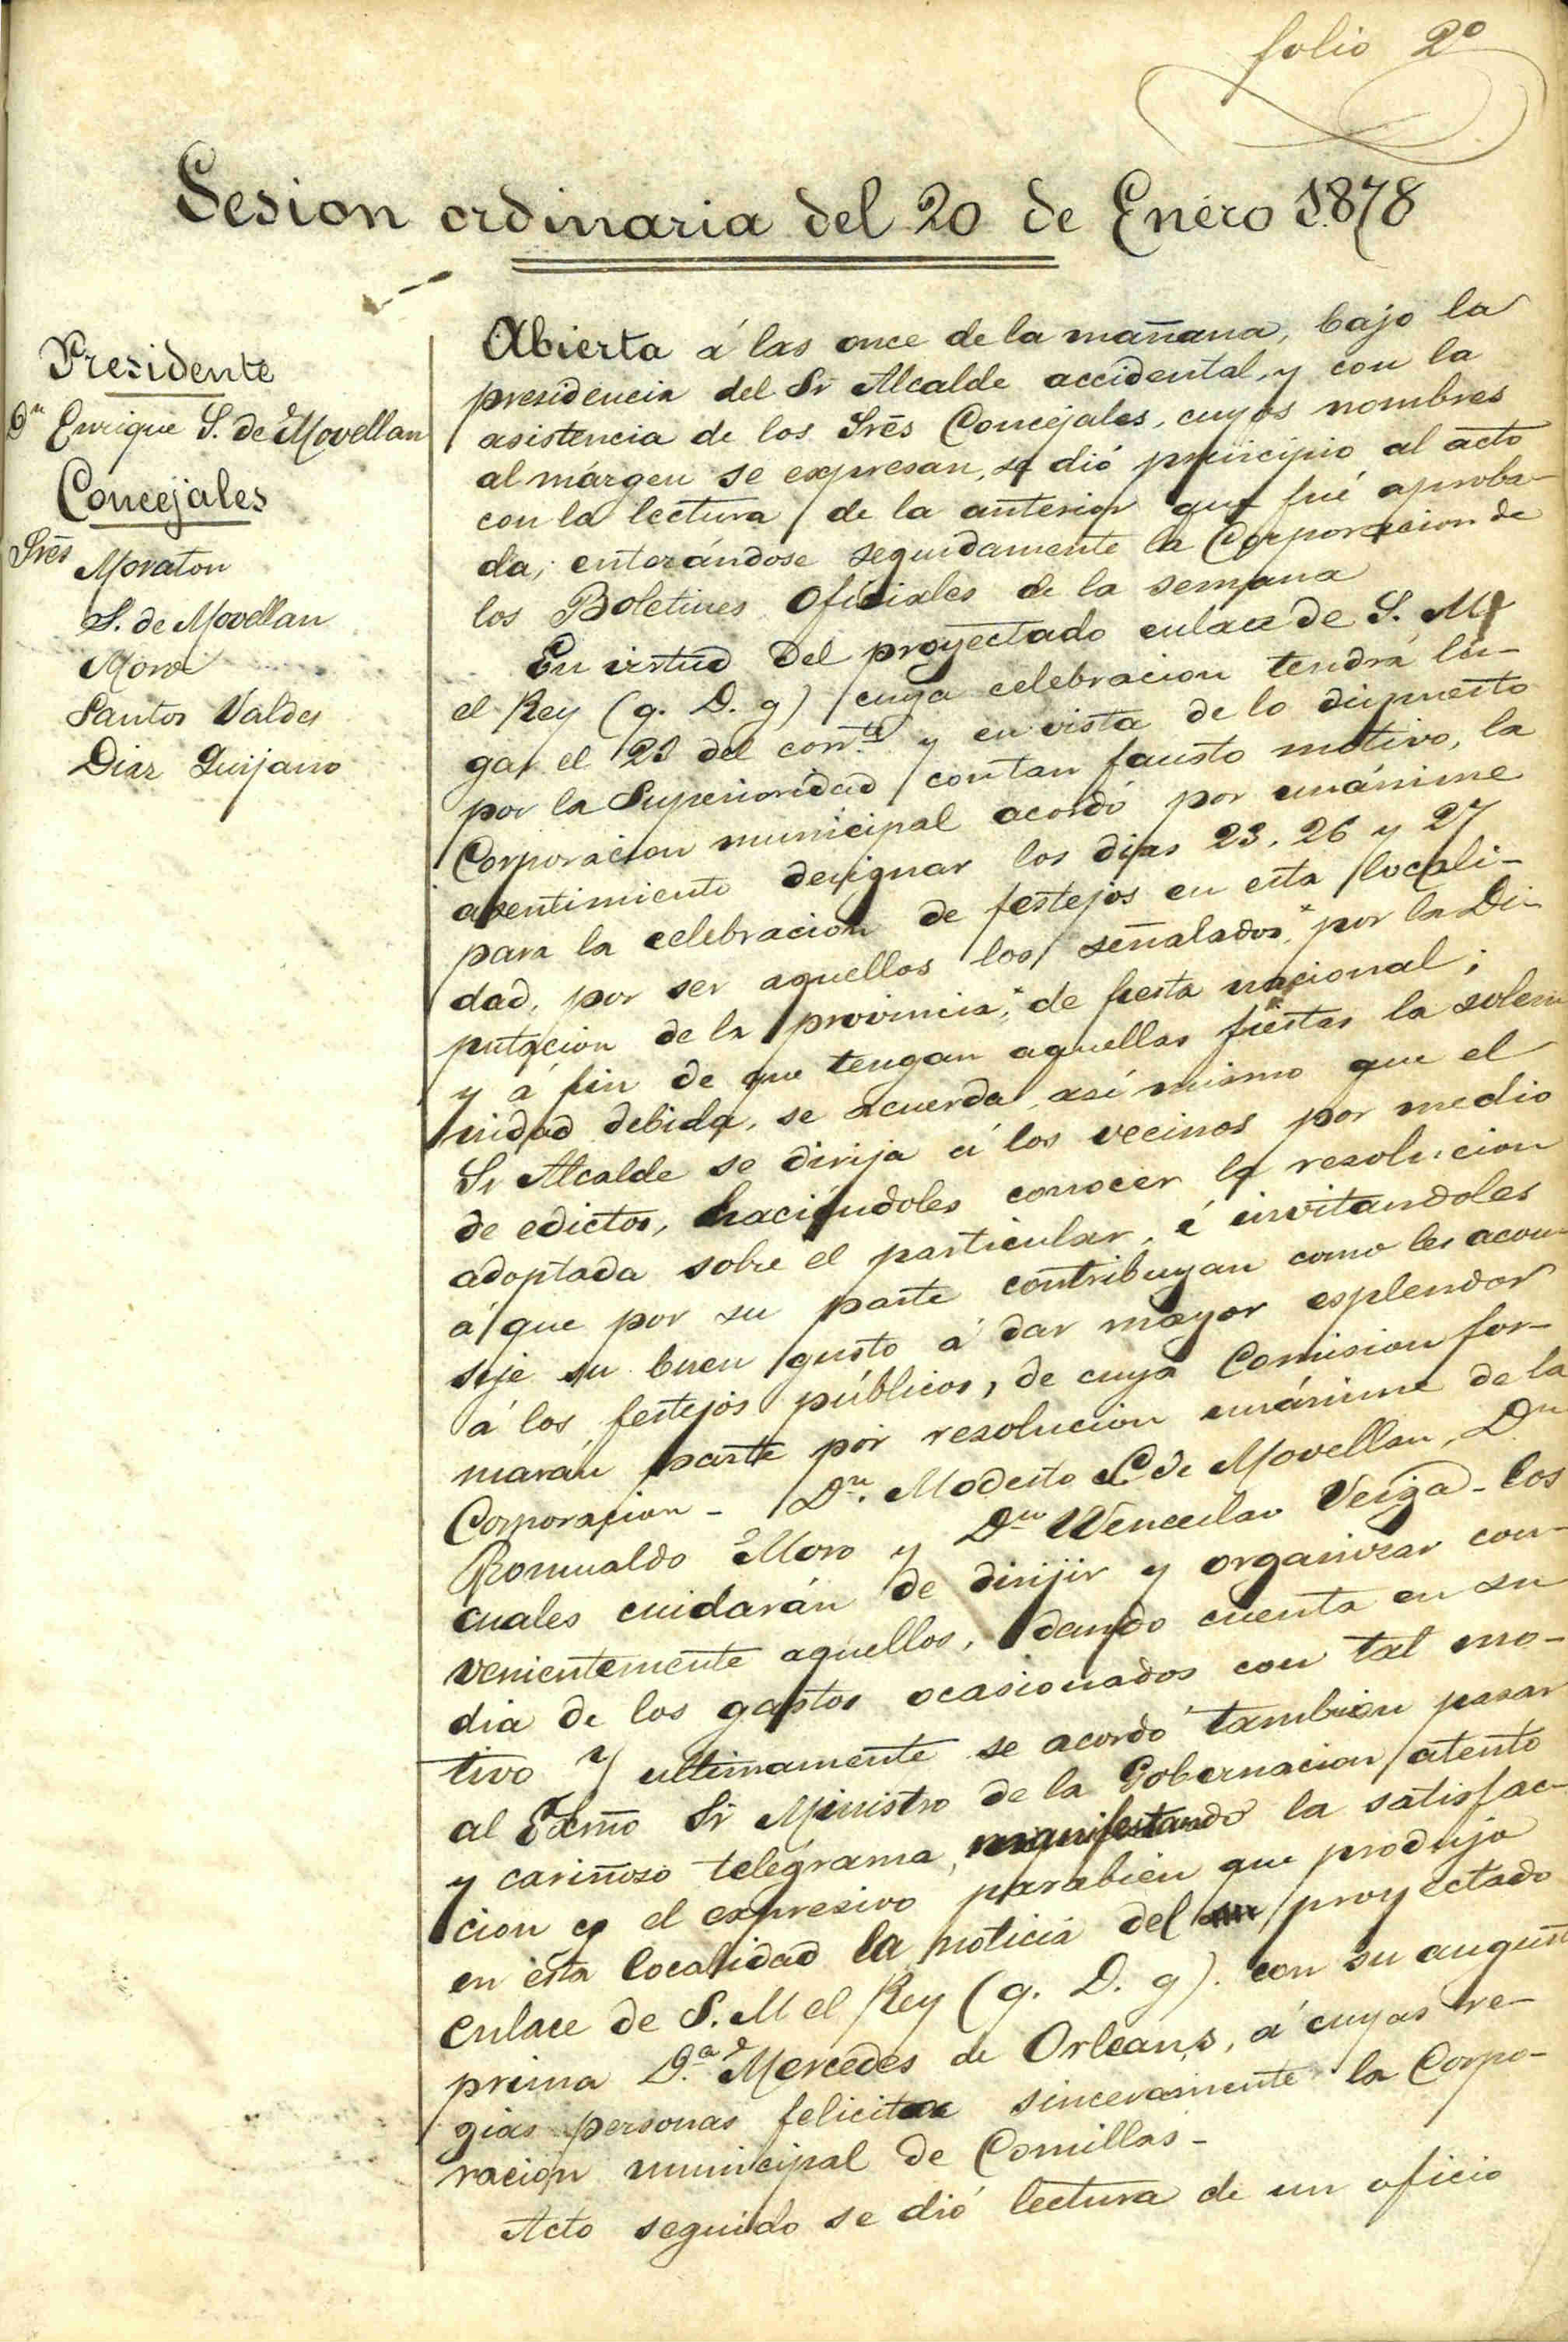 folio 2º
Sesion ordinaria del 20 de Enero 1878
Presidente
Dn Enrique S. de Movellan
Concejales
Srēs Moraton
S. de Movellan
Moro
Santos Valdes
Diaz Quijano
Abierta á las once de la mañana, bajo la
presidencia del Sr Alcalde accidental, y con la
asistencia de los Srēs Concejales, cuyos nombres
al márgen se expresan, se dió principio al acto
con la lectura de la anterior que fué aproba-
da; enterándose seguidamente la Corporacion de
los Boletines Oficiales de la semana
En virtud del proyectado enlace de S. M.
el Rey (q. D. g) cuya celebracion tendrá lu-
gar el 23 del corrte y en vista de lo dispuesto
por la Superioridad con tan fausto motivo, la
Corporacion municipal acordó por unánime
asentimiento designar los dias 23, 26 y 27
para la celebracion de festejos en esta locali-
dad, por ser aquellos los señalados, por la Di-
putacion de la provincia, de fiesta nacional;
y á fin de que tengan aquellas fiestas la solem
nidad debida, se acuerda así mismo que el
Sr Alcalde se dirija á los vecinos por medio
de edictos, haciéndoles conocer la resolucion
adoptada sobre el particular, é invitandoles
á que por su parte contribuyan como les acon-
seje su buen gusto á dar mayor esplendor
á los festejos públicos, de cuya Comision for-
marán parte por resolucion unánime de la
Corporacion - Dn. Modesto S. de Movellan, Dn
Romualdo Moro y Dn Wenceslao Veiga - los
cuales cuidarán de dirijir y organizar con-
venientemente aquellos, dando cuenta en su
dia de los gastos ocasionados con tal mo-
tivo Y ultimamente se acordó tambien pasar
al Exmo Sr Ministro de la Gobernacion atento
y cariñoso telégrama, manifestando la satisfac-
cion y el expresivo parabien que produjo
en esta localidad la noticia del proyectado
enlace de S. M el Rey (q. D. g). con su august
prima D.ª Mercedes de Orleans, á cuyas re-
gias personas felicita sinceramente la Corpo-
racion municipal de Comillas -
Acto seguido se dió lectura de un oficio